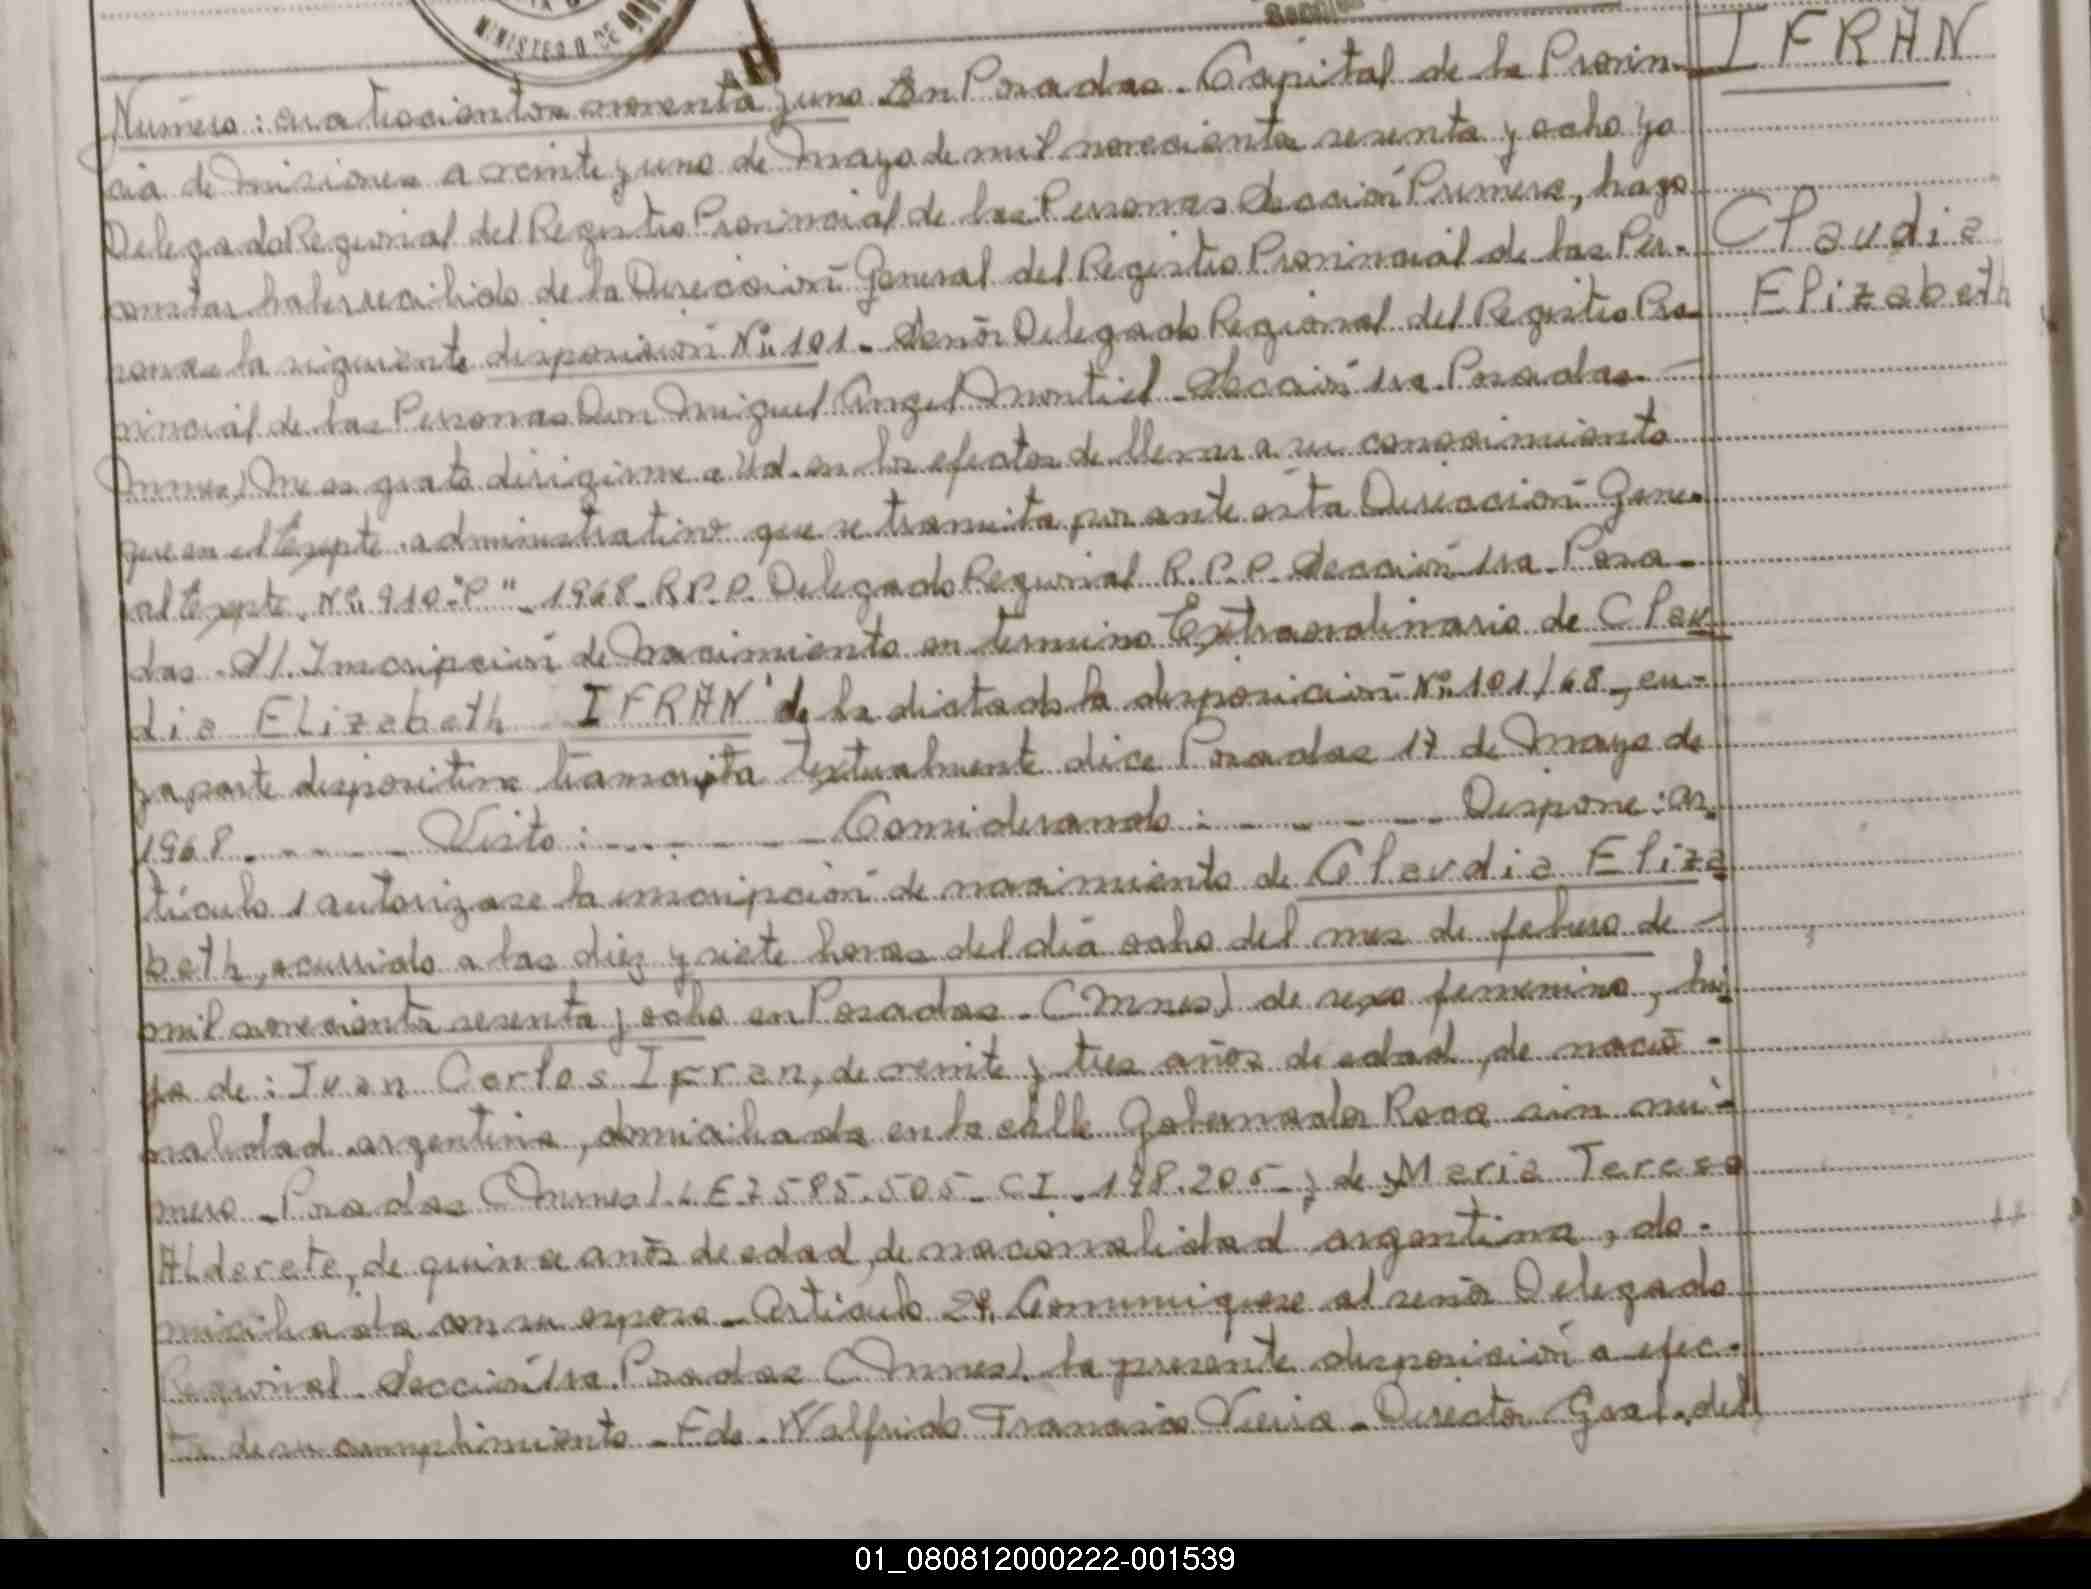 MINISTERIO DE
Sección
Número: cuatrocientos noventa y uno En Posadas. Capital de la Provin-
IFRAN
cia de Misiones a veinte y uno de Mayo de mil novecientos sesenta y ocho yo
Delegado Regional del Registro Provincial de las Personas Sección Primera, hago
Claudia
constar haber recibido de la Dirección General del Registro Provincial de las Per-
Elizabeth
sonas la siguiente disposición Nº 101. Señor Delegado Regional del Registro Pro
vincial de las Personas Don Miguel Angel Montiel. Sección 1ra. Posadas.
Mnes) Me es grato dirigirme a Ud. en los efectos de llevar a su conocimiento
que en el Expte. administrativo que se tramita por ante esta Dirección Gene-
ral Expte. Nº 910-"P"-1968-R.P.P. Delegado Regional R.P.P. Sección 1ra-Posa-
das. S/. Inscripción de Nacimiento en termino Extraordinario de Clau
dia Elizabeth IFRAN se ha dictado la disposición Nº 101/68-, cu-
ya parte dispositiva transcripta textualmente dice Posadas 17 de Mayo de
1968 - - - - - Visto: - - - - - Considerando: - - - - - Dispone: ar.
tículo 1 autorizase la inscripción de nacimiento de Claudia Eliza
beth, ocurrido a las diez y siete horas del dia ocho del mes de febrero de
mil novecientos sesenta y ocho en Posadas. (Mnes) de sexo femenino, hi
ja de: Juan Carlos Ifran, de veinte y tres años de edad, de nacio-
nalidad argentina, domiciliado en la calle Gobernador Roca sin nú-
mero - Posadas (Mnes) L.E 7585.505- CI. 198.205- y de Maria Teresa
Alderete, de quince años de edad, de nacionalidad argentina, do-
miciliada con su esposo - Articulo 2º. Comuniquese al señor Delegado
Regional. Sección 1ra. Posadas (Mnes). la presente disposición a efec-
to de su cumplimiento - Fdo. Walfrido Francisco Vieira - Director Gral. del
01_080812000222-001539